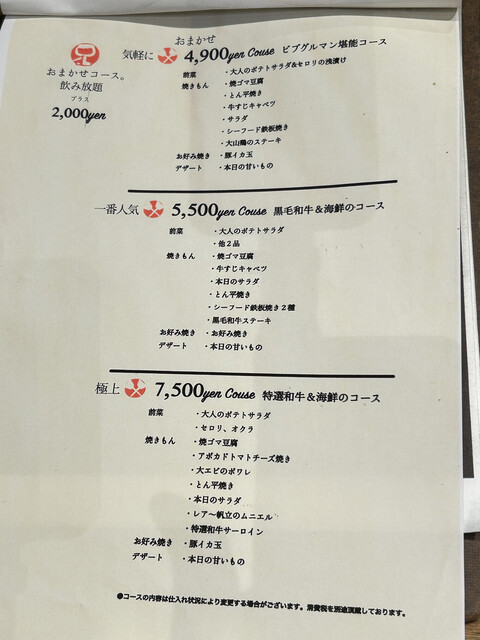 兄
おまかせコース。
飲み放題
プラス
2,000yen
おまかせ
気軽に 4,900yen Couse ビブグルマン堪能コース
前菜 ・大人のポテトサラダ&セロリの浅漬け
焼きもん ・焼ゴマ豆腐
・とん平焼き
・牛すじキャベツ
・サラダ
・シーフード鉄板焼き
・大山鶏のステーキ
お好み焼き ・豚イカ玉
デザート ・本日の甘いもの
一番人気 5,500yen Couse 黒毛和牛&海鮮のコース
前菜 ・大人のポテトサラダ
・他2品
焼きもん ・焼ゴマ豆腐
・牛すじキャベツ
・本日のサラダ
・とん平焼き
・シーフード鉄板焼き2種
・黒毛和牛ステーキ
お好み焼き ・お好み焼き
デザート ・本日の甘いもの
極上 7,500yen Couse 特選和牛&海鮮のコース
前菜 ・大人のポテトサラダ
・セロリ、オクラ
焼きもん ・焼ゴマ豆腐
・アボカドトマトチーズ焼き
・大エビのポワレ
・とん平焼き
・本日のサラダ
・レア〜帆立のムニエル
・特選和牛サーロイン
お好み焼き ・豚イカ玉
デザート ・本日の甘いもの
●コースの内容は仕入れ状況により変更する場合がございます。消費税を別途頂戴しております。